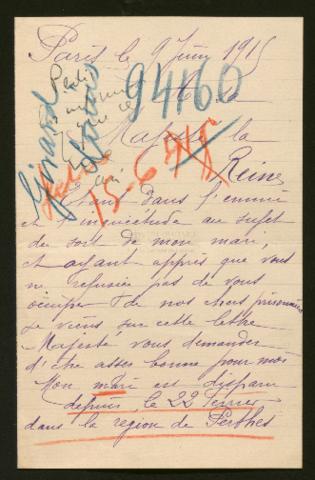 Paris le 9 Juin 1915
94160
A sa
Majesté la
Reine
Girard
15-6
Etant dans l'ennui
et l'inquiétude au sujet
du sort de mon mari,
et ayant appris que vous
ne refusiez pas de vous
occuper de nos chers prisonniers
Je viens sur cette lettre
Majesté vous demander
d'être asses bonne pour moi
Mon mari est disparu
depuis le 22 Fevrier
dans la région de Perthes